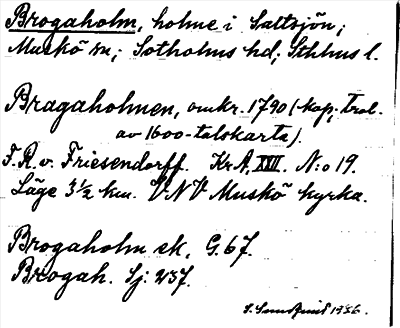 Brogaholm, holme i Saltsjön;
Muskö sn; Sotholms hd; Sthlms l.
Bragaholmen, omkr. 1790 (kop. trol.
av 1600-talskarta).
F. R. v. Friesendorff. Kr A, XXII. N:o 19.
Läge 3½ km. VNV Muskö kyrka.
Brogaholm ek, G. 67.
Brogah. Sj: 237.
S. 1936.